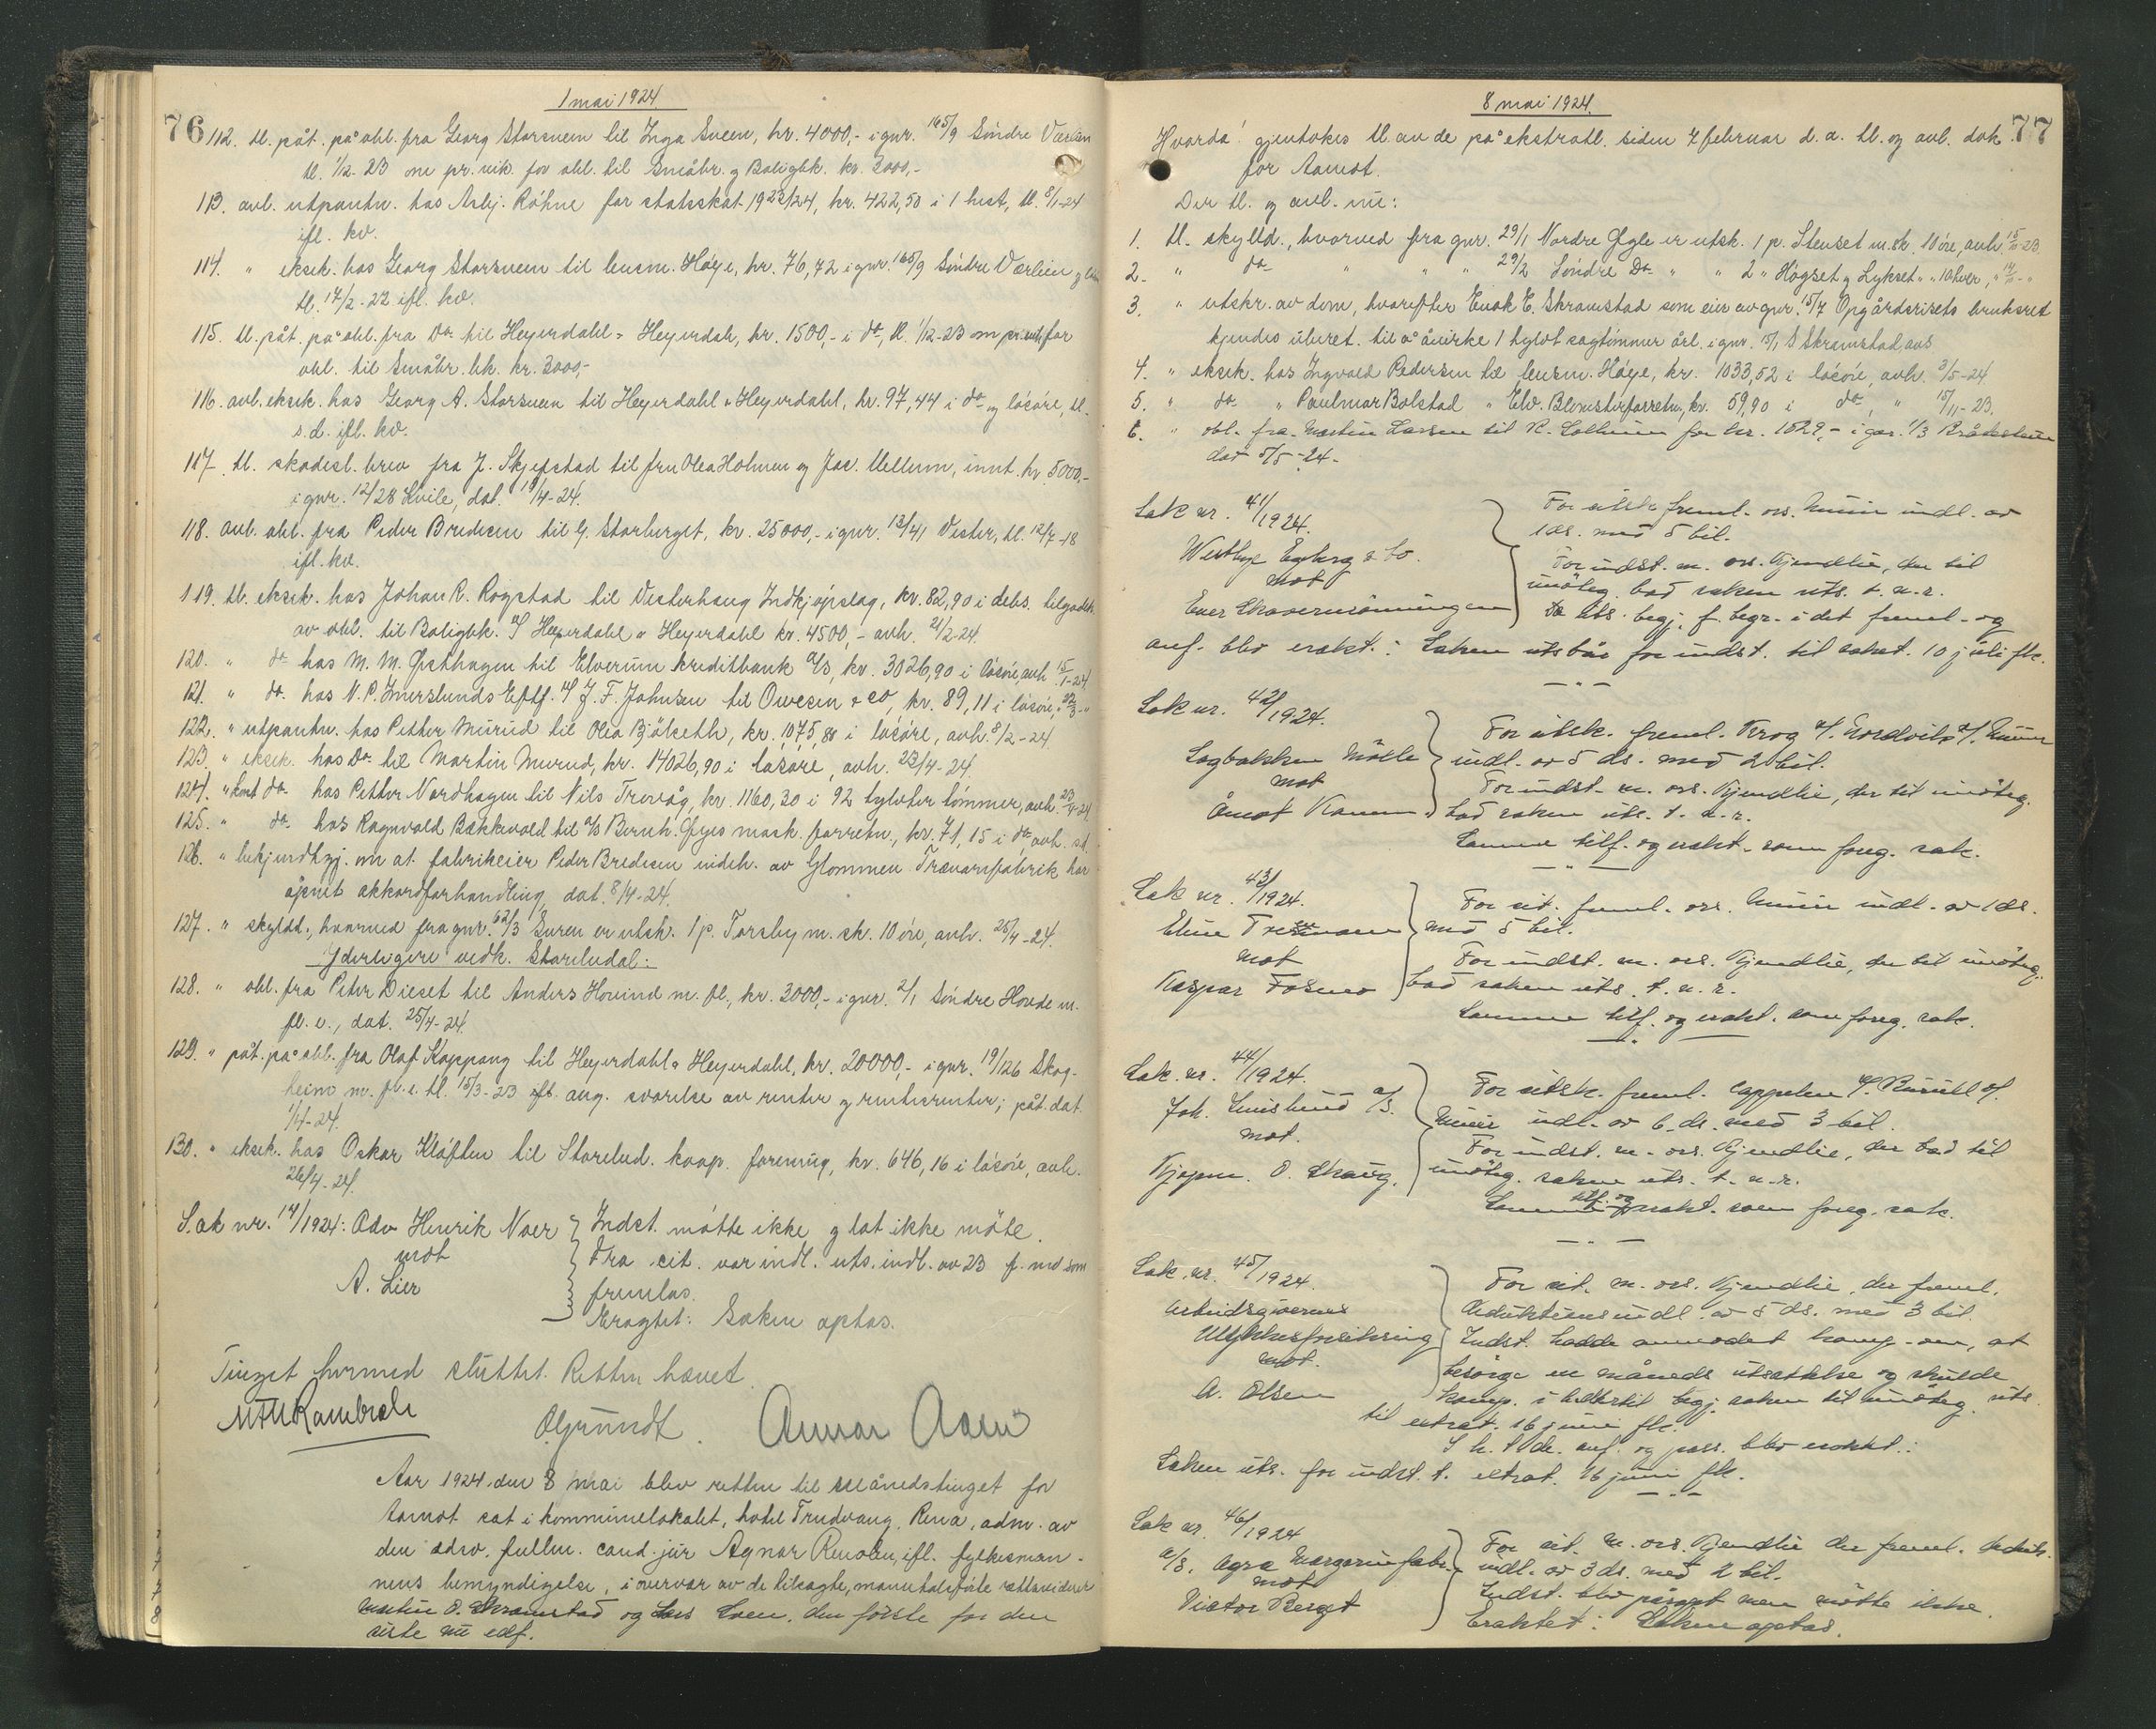 1 mai 1924.
76
112. tl. påt. på obl. fra Georg Storsveen til Inga Sveen, kr. 4000,- i gnr. 165/9 Søndre Værlien
tl. 1/2-23 om pr. vik. for obl. til Småbr. og Boligbk. kr. 3000,-
113. avl. utpantn. hos Asbj. Röhne for statsskat 1923/24, kr. 422,50 i 1 hest, tl. 8/1-24
ifl. kv.
114. " eksek. hos Georg Storsveen til lensm. Høye, kr. 76,72 i gnr. 165/9 Søndre Værlien
tl. 17/2-22 ifl. kv.
115. tl. påt. på obl. fra Do til Heyerdahl & Heyerdahl, kr. 1500,- i do, tl. 1/12-23 om pr. vik for
obl. til Småbr. bk. kr. 3000,-
116. avl. eksek. hos Georg A. Storsveen til Heyerdahl & Heyerdahl, kr. 97,44 i do og løsøre, tl.
s.d. ifl. kv.
117. tl. skadesl. brev fra J. Skjefstad til fru Olea Holmen og Jac. Mellum, innt. kr. 5000,-
i gnr. 12/28 Kvile, dat. 19/4-24.
118. avl. obl. fra Peder Bredesen til G. Storberget, kr. 25000,- i gnr. 13/41 Vester, tl. 12/7-18
ifl. kv.
119. tl. eksek. hos Johan R. Rogstad til Vesterhaug Indkjøpslag, kr. 82,90 i debs. tilgodeh.
av obl. til Boligbk. v/ Heyerdahl & Heyerdahl kr. 4500,- avh. 21/2-24.
120. " do hos M. M. Østhagen til Elverum kreditbank A/S, kr. 3026,90 i løsøre, avh. 15/1-24
121. " do. hos N. P. Inverslunds Eftf. v/ J. F. Johnsen til Owesen & co, kr. 89,11 i løsøre, " 22/3-"
122. " utpantn. hos Petter Murud til Olea Bjölseth, kr. 1075,88 i løsøre, avh. 8/2-24.
123. " eksek. hos Do. til Martin Murud, kr. 14026,90 i løsøre, avh. 23/4-24.
124. " do. hos Petter Nordhagen til Nils Trovåg, kr. 1160,30 i 92 tylvter tømmer, avh. 23/4-24
125. " do. hos Ragnvald Bækkvold til A/S Bernh. Øyes mask. forretn., kr. 71,15 i do, avh.
126. " bekjendtgj. om at fabrikeier Peder Bredesen indeh. av Glommen Trævarefabrik har
åpnet akkordforhandling, dat. 8/4-24.
127. " skyldd., hvorved fra gnr. 62/3 Suren er utsk. 1 p. Torsby m. sk. 10 øre, avh. 25/4-24.
Yderligere vedk. Storelvdal:
128. " obl. fra Peter Dieset til Anders Hovind m. fl., kr. 3000,- i gnr. 2/1 Søndre Hovde m.
fl. e., dat. 25/4-24.
129. " påt. på obl. fra Olaf Koppang til Heyerdahl & Heyerdahl, kr. 20000,- i gnr. 19/126 Skog-
heim m. fl. e. tl. 15/3-23 ang. svarelse av renter og rentesrenter; påt. dat.
1/4-24.
130. " eksek. hos Oskar Kløften til Storelvd. koop. forening, kr. 646,16 i løsøre, avh.
26/4-24.
Sak nr. 14/1924: Adv Henrik Naer
mot
A. Lier
Indst. møtte ikke og lot ikke møte.
Fra cit. var indl. uts. indl. av 23 f. md som
fremlas.
Eragtet: Saken optas.
Tinget hermed sluttet. Retten hævet.
Aar 1924, den 8 mai blev retten til månedstinget for
Aamot sat i kommunelokalet, hotel Trudvang, Rena, adm. av
den edsv. fullm. cand. jur Agnar Renolen, ifl. fylkesman-
nens bemyndigelse, i overvær av de tilsagte, mantalsførte rettsvidner
Martin O. Skramstad og Lars Loen, den første for den
siste nu edf.
8 mai 1924.
77
Hvorda! gjentokes tl. av de på ekstratl. siden 7 februar d. a. tl. og avl. dok.
for Aamot.
Der tl. og avl. nu:
1. tl. skyldd., hvorved fra gnr. 29/1 Nordre Øgle er utsk. 1 p. Stenset m. sk. 10 øre, avh. 15/10-23.
2. " do " " " 29/2 Søndre Do " " 2 " Høgset og Lykset " " 10 hver, " 14/11-"
3. " utskr. av dom, hvorefter Enok E. Skramstad som eier av gnr. 15/7 Opgårdsrisets bruksret
kjendes uberet. til å åvirke 1 tylvt sagtømmer årl. i gnr. 15/1 S Skramstad, avs
4. " eksek. hos Ingvald Pedersen til lensm. Høye, kr. 1033,52 i løsøre, avh. 3/5-24
5. " do " Paulmar Bolstad " Elv. Blomsterforretn., kr. 59,90 i do, " 15/11-23.
6. " obl. fra Martin Larsen til K. for kr. 1529,- i gnr. 1/3
dat 5/5-24-
Sak nr. 41/1924.
Westbye Egeberg & Co.
mot
For utsk. freml. ors. Munin indl. av
1 ds. med 5 bil.
For indst. m. ors. Kjendlie, der til
imøteg. bad saken uts. t. n. r.
De uts. begj. f. begr. i det freml. og
anf. blev erakt.: Saken utsbår for indst. til ekstrat. 10 juli flk.
Sak nr. 42/1924.
Sagbakken Mølle
mot
Åmot Komm.
For utsk. freml. Krog v/ Nordvik v/ Munin
indl. av 5 ds. med 2 bil.
For indst. m. ors. Kjendlie, der til imøteg.
bad saken uts. t. n. r.
Samme tilf. og erakt. som foreg. sak.
Sak nr. 43/1924.
mot
Kaspar Fosmo
For cit. freml. ors. Munin indl. av 1 ds.
med 5 bil.
For indst. m. ors. Kjendlie, der til imøteg.
bad saken uts. t. n. r.
Samme tilf. og erakt. som foreg. sak.
Sak. nr. 44/1924.
mot.
Kjøpm. O. Skaug.
For utsk. freml. Cappelen v/
Munin indl. av 6 ds. med 3 bil.
For indst. m. ors. Kjendlie, der bad til
imøteg. saken uts. t. n. r.
Samme tilf. og erakt. som foreg. sak.
Sak. nr. 45/1924.
Arbeidsgivernes
Ulykkesforsikring
mot.
A. Olsen
For cit. m. ors. Kjendlie, der freml.
deduktionsindl. av 5 ds. med 3 bil.
Indst. hadde anmodet komp. om, at
besørge en måneds utsættelse og skulde
komp. i henhold hertil begj. saken til imøteg. uts.
til extrat. 16 juni flk.
I h. t. de. anf. og pass. blev erakt.:
Saken uts. for indst. t. extrat. 16 juni flk.
Sak nr. 46/1924
A/S. Agra Margarinfabr.
mot
Victor Berget
For cit. m. ors. Kjendlie der freml. deduk.
indl. av 3 ds. med 2 bil.
Indst. blev påropt men møtte ikke.
Eraktet: Saken optas.